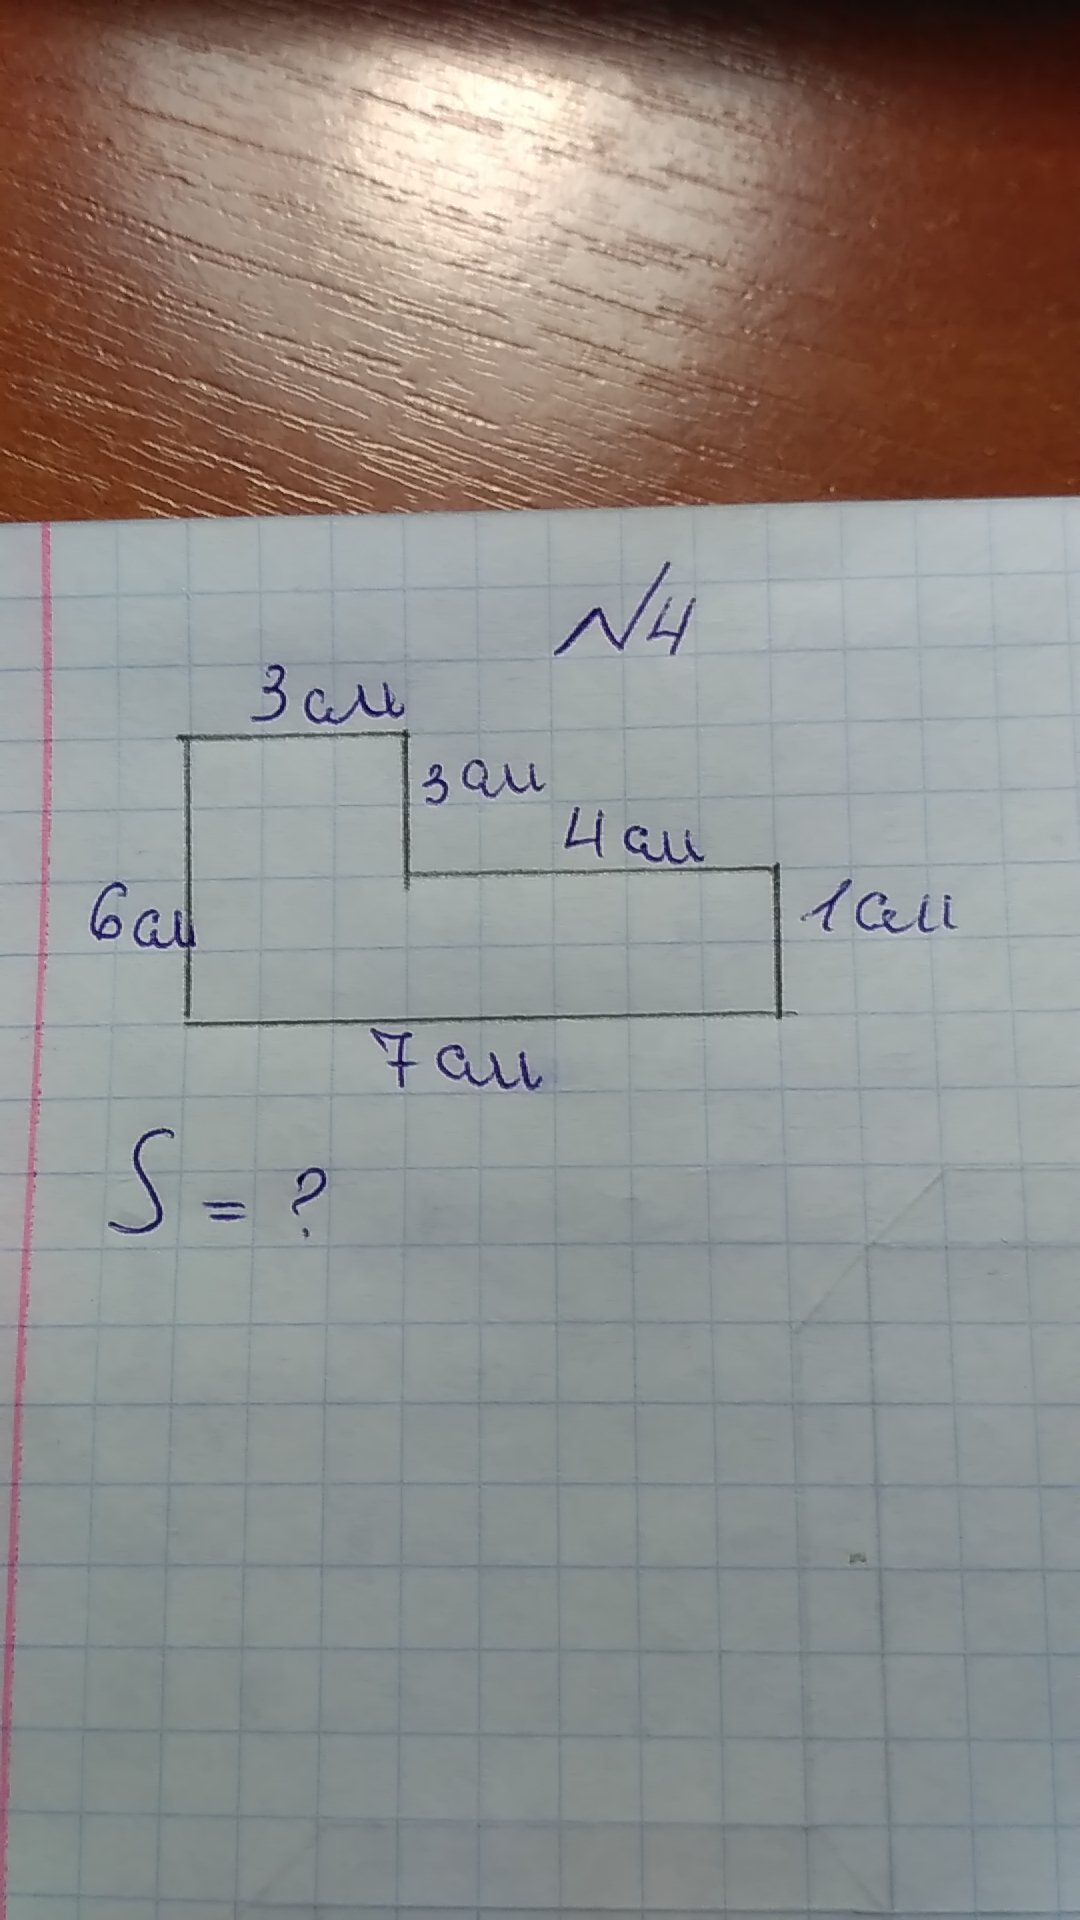 №4
3 см
3 см
4 см
6 см
1 см
7 см
S = ?